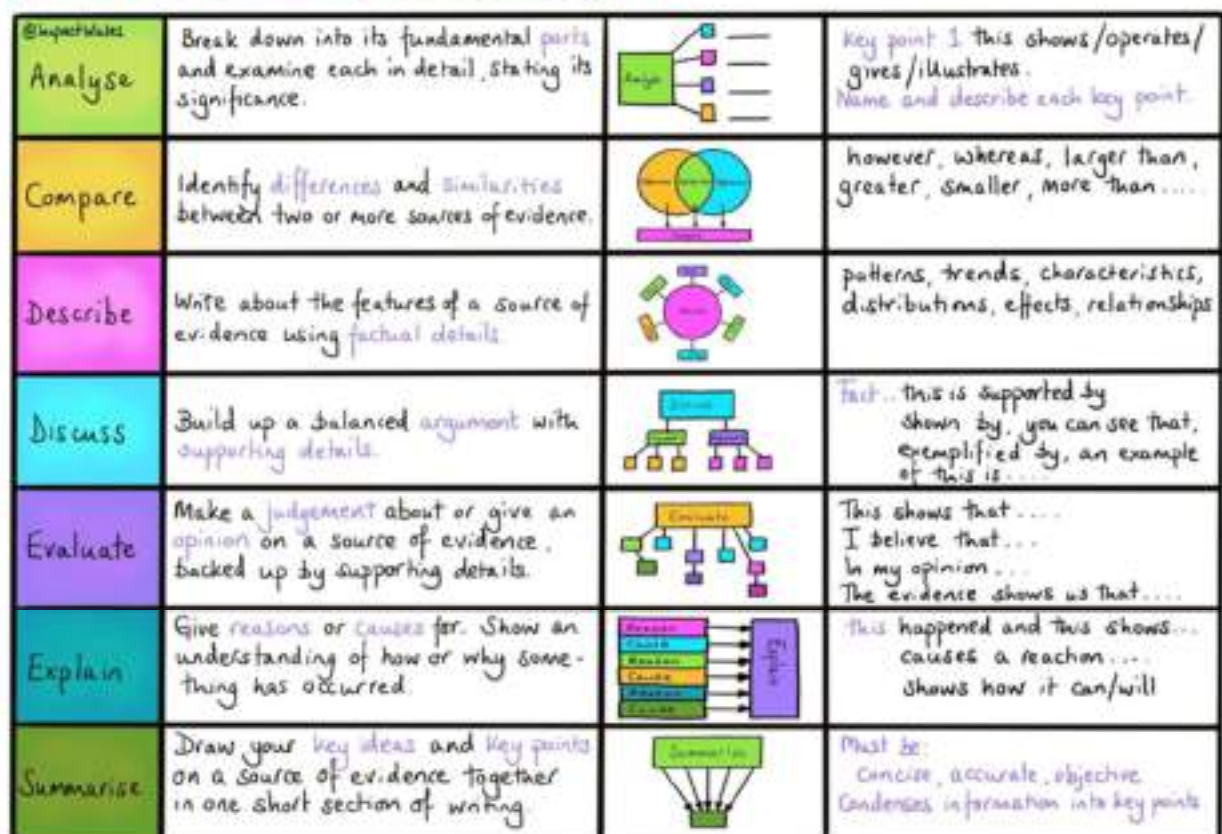 @ImpactWales
Analyse
Break down into its fundamental parts
and examine each in detail, stating its
significance.
Analyse
Key point 1 this shows/operates/
gives/illustrates.
Name and describe each key point.
Compare
Identify differences and similarities
between two or more sources of evidence.
however, whereas, larger than,
greater, smaller, more than.....
Describe
Write about the features of a source of
evidence using factual details
patterns, trends, characteristics,
distributions, effects, relationships
Discuss
Build up a balanced argument with
supporting details.
Discuss
Fact.. this is supported by
shown by, you can see that,
exemplified by, an example
of this is....
Evaluate
Make a judgement about or give an
opinion on a source of evidence,
backed up by supporting details.
Evaluate
This shows that ....
I believe that...
In my opinion...
The evidence shows us that....
Explain
Give reasons or causes for. Show an
understanding of how or why some-
thing has occurred.
Reason
Cause
Reason
Cause
Reason
Cause
Explain
This happened and this shows...
causes a reaction....
shows how it can/will
Summarise
Draw your key ideas and key points
on a source of evidence together
in one short section of writing.
Summarise
Must be:
Concise, accurate, objective
Condenses information into key points